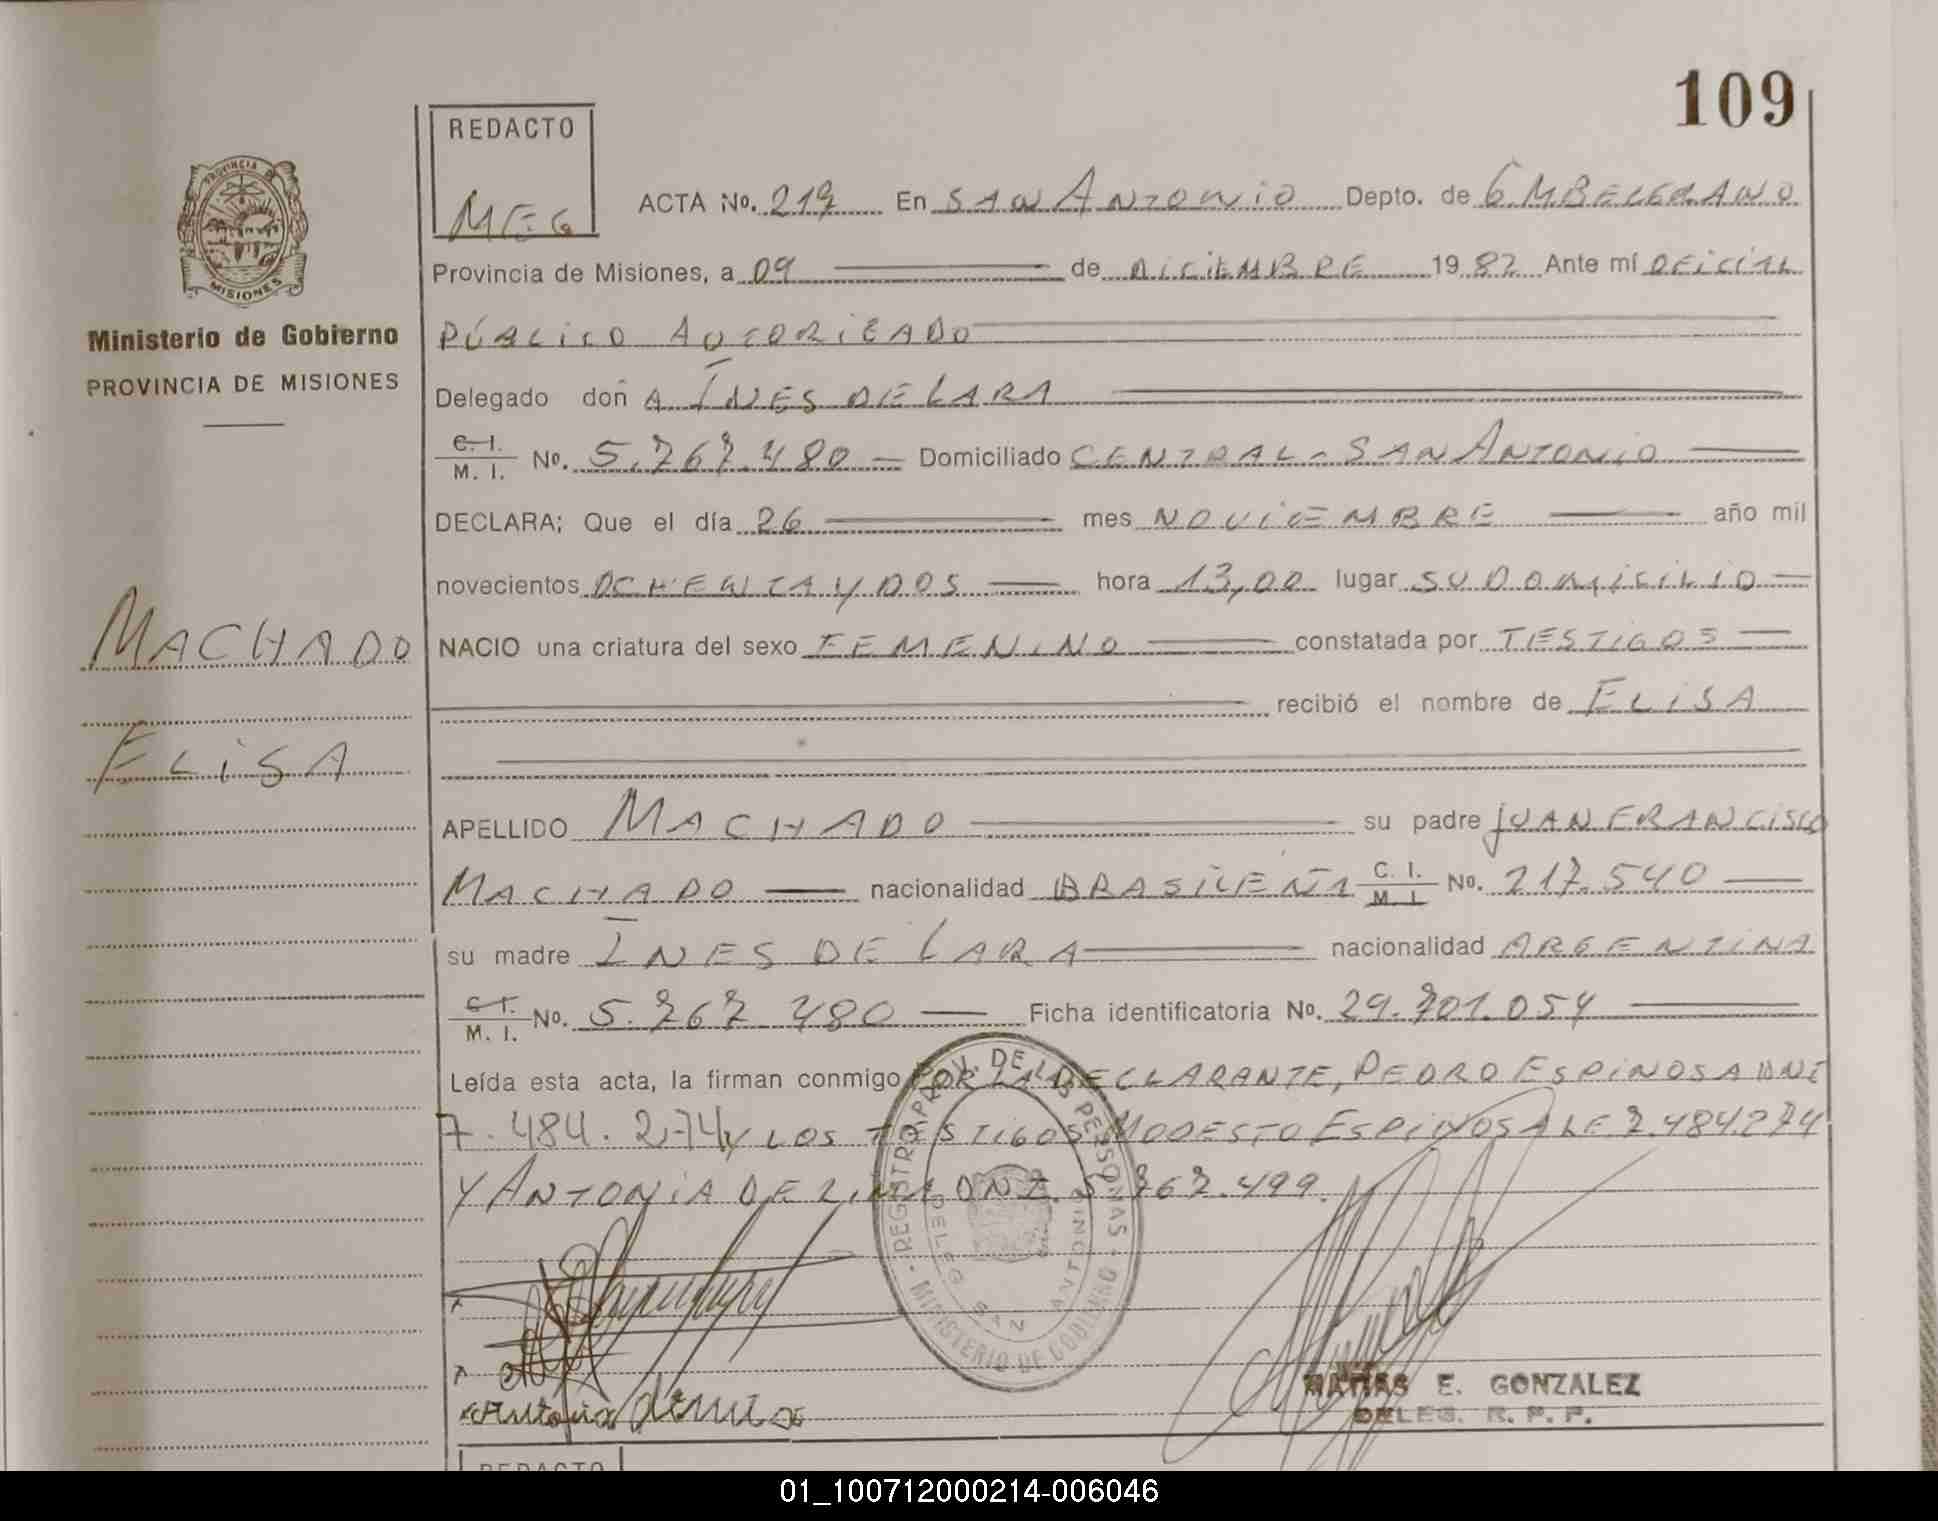 109
REDACTO
MEG
ACTA Nº. 217 En SAN ANTONIO Depto. de G M BELGRANO
Provincia de Misiones, a 09 de DICIEMBRE 1982 Ante mí OFICIAL
PÚBLICO AUTORIZADO
Delegado doñ A INES DE LARA
C. I.
M. I. Nº. 5.767.480 Domiciliado CENTRAL - SAN ANTONIO
DECLARA; Que el día 26 mes NOVIEMBRE año mil
novecientos OCHENTA Y DOS hora 13,00 lugar SU DOMICILIO
NACIO una criatura del sexo FEMENINO constatada por TESTIGOS
recibió el nombre de ELISA
APELLIDO MACHADO su padre JUAN FRANCISCO
MACHADO nacionalidad BRASILEÑA C. I. M. I. Nº. 217.540
su madre INES DE LARA nacionalidad ARGENTINA
C. I.
M. I. Nº. 5.767.480 Ficha identificatoria Nº. 29.701.054
Leída esta acta, la firman conmigo POR LA DECLARANTE, PEDRO ESPINOSA DNI
7.484.274 Y LOS TESTIGOS MODESTO ESPINOSA LE 7.484.274
Y ANTONIA DE LIMA DNI. 5.767.499.
Antonia de lima
REGISTRO PROV. DE LAS PERSONAS
MINISTERIO DE GOBIERNO
DELEG. SAN ANTONIO
MATIAS E. GONZALEZ
DELEG. R. P. P.
REDACTO
PROVINCIA DE
MISIONES
Ministerio de Gobierno
PROVINCIA DE MISIONES
MACHADO
ELISA
01_100712000214-006046